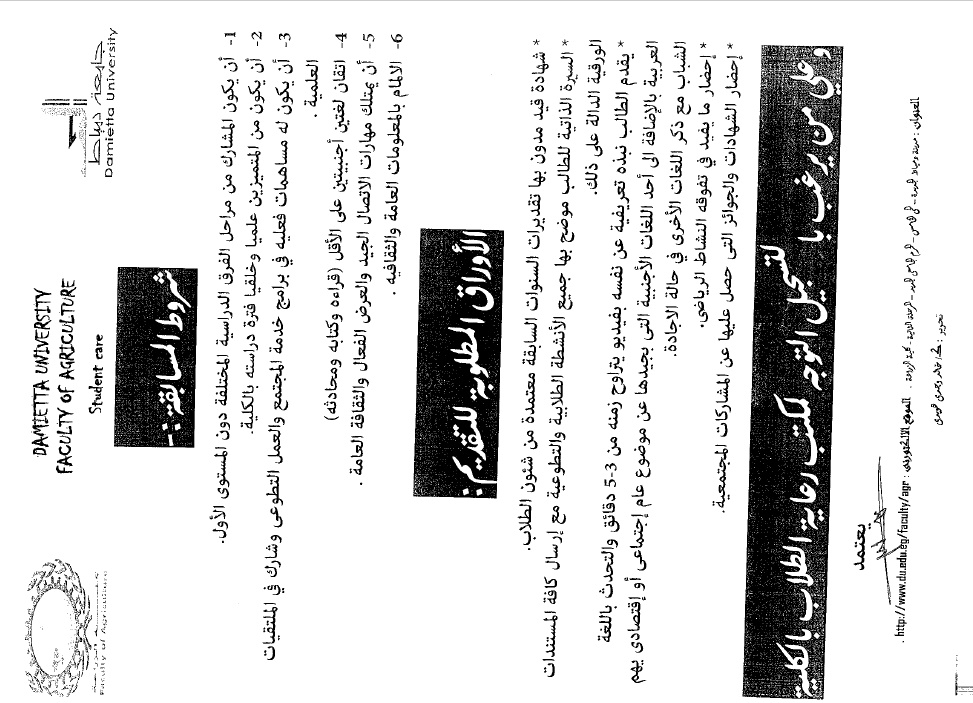 جامعة دمياط
Damietta University
DAMIETTA UNIVERSITY
FACULTY OF AGRICULTURE
Student care
Faculty of Agriculture
شروط المسابقة:-
1- أن يكون المشارك من مراحل الفرق الدراسية المختلفة دون المستوى الأول.
2- أن يكون من المتميزين علميا وخلقيا فترة دراسته بالكلية.
3- أن يكون له مساهمات فعليه في برامج خدمة المجتمع والعمل التطوعى وشارك في الملتقيات
العلمية .
4- اتقان لغتين أجنبيتين على الأقل (قراءه وكتابه ومحادثه)
5- أن يمتلك مهارات الاتصال الجيد والعرض الفعال والثقافة العامة .
6- الالمام بالمعلومات العامة والثقافيه .
الأوراق المطلوبة للتقديم:
* شهادة قيد مدون بها تقديرات السنوات السابقة معتمدة من شئون الطلاب.
* السيرة الذاتية للطالب موضح بها جميع الأنشطة الطلابية والتطوعية مع إرسال كافة المستندات
الورقية الدالة على ذلك.
* يقدم الطالب نبذه تعريفية عن نفسه بفيديو يتروح زمنه من 3-5 دقائق والتحدث باللغة
العربية بالإضافة الى أحد اللغات الأجنبية التى يجيدها عن موضوع عام إجتماعى أو إقتصادى يهم
الشباب مع ذكر اللغات الأخرى في حالة الاجادة.
* إحضار ما يفيد في تفوقه النشاط الرياضى.
* إحضار الشهادات والجوائز التى حصل عليها عن المشاركات المجتمعية.
وعلي من يرغب با
لتسجيل التوجه لمكتب رعاية الطلاب بالكلية
يعتمد
الموقع الالكترونى : http://www.du.edu.eg/faculty/agr .